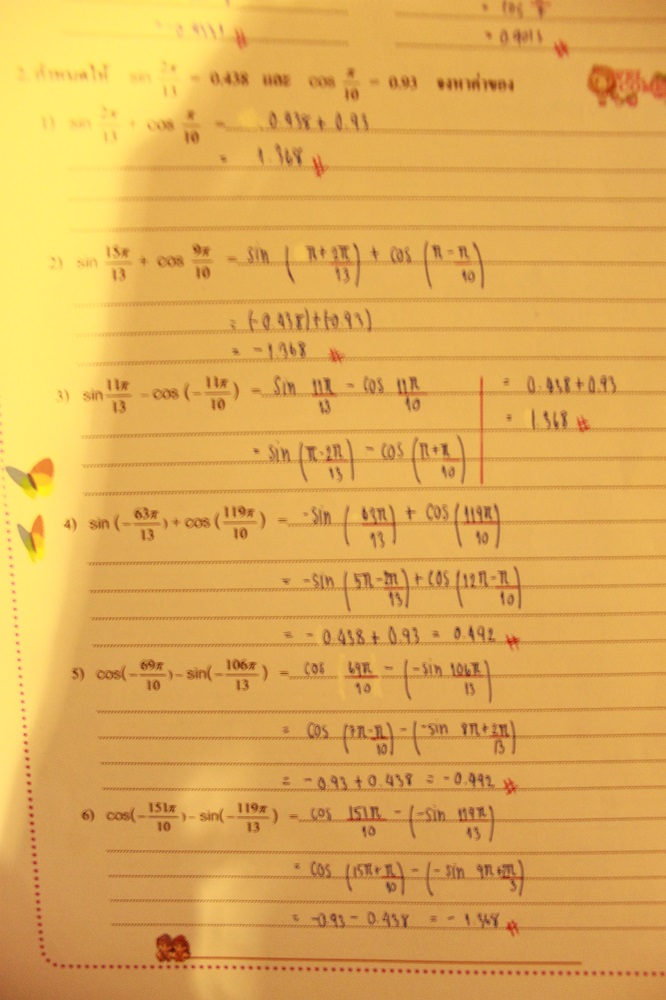 = cos π/
- 0.9331 #
= 0.9013 #
2. กำหนดให้ sin 2π/13 = 0.438 และ cos π/10 = 0.93 จงหาค่าของ
1) sin 2π/13 + cos π/10 = 0.438 + 0.93
= 1.368 #
2) sin 15π/13 + cos 9π/10 = sin (π+2π/13) + cos (π-π/10)
= (-0.438)+(-0.93)
= -1.368 #
3) sin 11π/13 - cos (-11π/10) = sin 11π/13 - cos 11π/10
= sin (π-2π/13) - cos (π+π/10)
= 0.438+0.93
= 1.368 #
4) sin (-63π/13) + cos (119π/10) = -sin (63π/13) + cos (119π/10)
= -sin (5π-2π/13) + cos (12π-π/10)
= -0.438 + 0.93 = 0.492 #
5) cos(-69π/10) - sin(-106π/13) = cos 69π/10 - (-sin 106π/13)
= cos (7π-π/10) - (-sin 8π+2π/13)
= -0.93 + 0.438 = -0.492 #
6) cos(-151π/10) - sin(-119π/13) = cos 151π/10 - (-sin 119π/13)
= cos (15π+π/10) - (-sin 9π+2π/3)
= -0.93 - 0.438 = -1.368 #